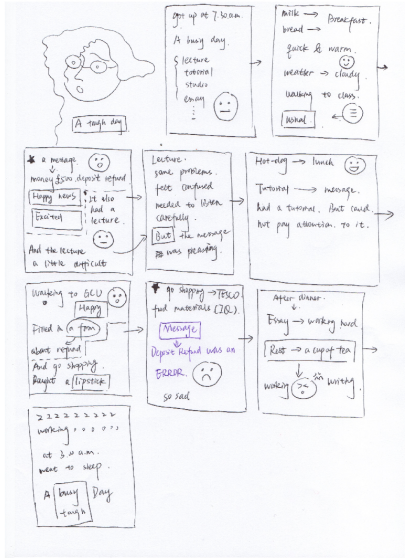 A tough day.
got up at 7.30 a.m.
A busy day.
lecture
tutorial
studio
essay
......
milk → Breakfast.
bread →
quick & warm.
weather → cloudy.
walking to class.
Usual
★ a message
money £500 deposit refund
Happy news
Excited
It also
had a
lecture.
And the lecture
a little difficult
Lecture.
some problems.
felt confused
needed to listen
carefully.
But the message
was pleasing.
Hot-dog → lunch
Tutorial → message.
had a tutorial. But could
not pay attention to it.
Walking to GCU
Happy
Filled in a form
about refund
And go shopping.
Bought a lipstick
★ go shopping → TESCO
find materials (IQ).
Message
Deposit Refund was an
ERROR.
so sad
After dinner.
Essay → working hard
Rest → a cup of tea
working
writing
2 2 2 2 2 2 2 2 2
working
at 3.0 a.m.
went to sleep.
A busy Day
tough